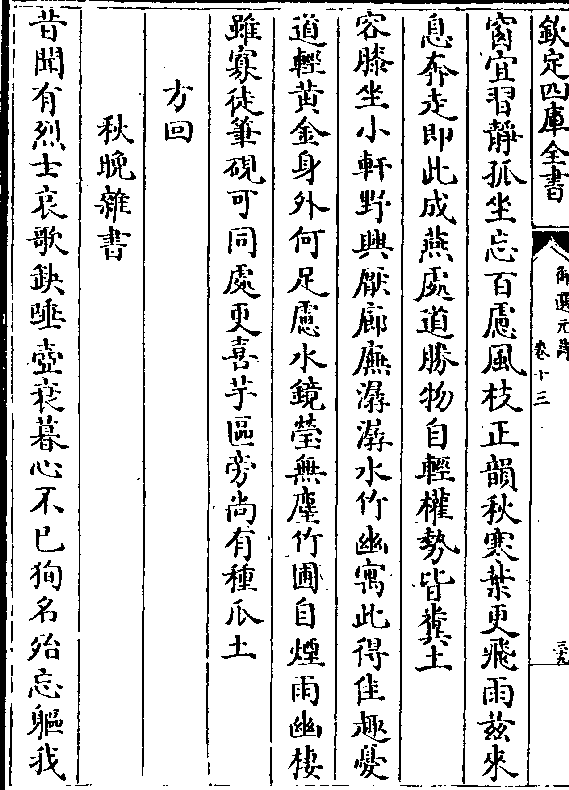 欽定四庫全書
御選元詩
卷十三
三九
窗宜習靜孤坐忘百慮風枝正韻秋寒葉更飛雨兹來
息奔走即此成燕處道勝物自輕權勢皆糞土
容膝坐小軒野興厭廊廡潺潺水竹幽寓此得佳趣憂
道輕黃金身外何足慮水鏡瑩無塵竹圃自煙雨幽棲
雖寡徒筆硯可同處更喜芋區旁尚有種瓜土
方回
秋晚雜書
昔聞有烈士哀歌缺唾壺衰暮心不已狥名殆忘軀我